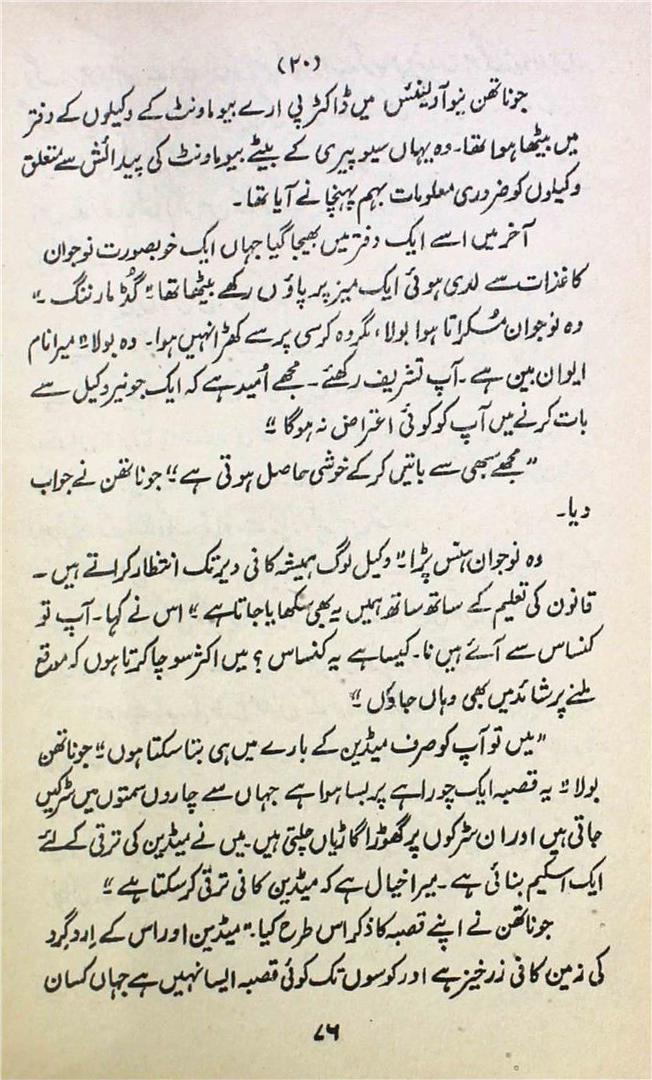 (۲۰)
جوناتھن نیو آرلینس میں ڈاکٹر پی ارے بیوماونٹ کے وکیلوں کے دفتر
میں بیٹھا ہوا تھا۔ وہ یہاں سیو پیری کے بیٹے بیوماونٹ کی پیدائش سے متعلق
وکیلوں کو ضروری معلومات بہم پہنچانے آیا تھا۔
آخر میں اسے ایک دفتر میں بھیجا گیا جہاں ایک خوبصورت نوجوان
کاغذات سے لدی ہوئی ایک میز پر پاؤں رکھے بیٹھا تھا "گڈ مارننگ۔"
وہ نوجوان مسکراتا ہوا بولا، مگر وہ کرسی پر سے کھڑا نہیں ہوا۔ وہ بولا "میرا نام
ایوان بین ہے۔ آپ تشریف رکھئے۔ مجھے اُمید ہے کہ ایک جونیر وکیل سے
بات کرنے میں آپ کو کوئی اعتراض نہ ہوگا"
"مجھے سبھی سے باتیں کرکے خوشی حاصل ہوتی ہے" جوناتھن نے جواب
دیا۔
وہ نوجوان ہنس پڑا "وکیل لوگ ہمیشہ کافی دیر تک انتظار کراتے ہیں۔
قانون کی تعلیم کے ساتھ ساتھ ہمیں یہ بھی سکھایا جاتا ہے" اس نے کہا۔ آپ تو
کنساس سے آئے ہیں نا۔ کیسا ہے یہ کنساس؟ میں اکثر سوچا کرتا ہوں کہ موقع
ملنے پر شائد میں بھی وہاں جاؤں"
"میں تو آپ کو صرف میڈین کے بارے میں ہی بتا سکتا ہوں" جوناتھن
بولا "یہ قصبہ ایک چوراہے پر بسا ہوا ہے جہاں سے چاروں سمتوں میں سڑکیں
جاتی ہیں اور ان سڑکوں پر گھوڑا گاڑیاں چلتی ہیں۔ میں نے میڈین کی ترقی کے لئے
ایک اسکیم بنائی ہے۔ میرا خیال ہے کہ میڈین کافی ترقی کرسکتا ہے"
جوناتھن نے اپنے قصبہ کا ذکر اس طرح کیا۔ "میڈین اور اس کے اِرد گرد
کی زمین کافی زرخیز ہے اور کوسوں تک کوئی قصبہ ایسا نہیں ہے جہاں کسان
۷۶